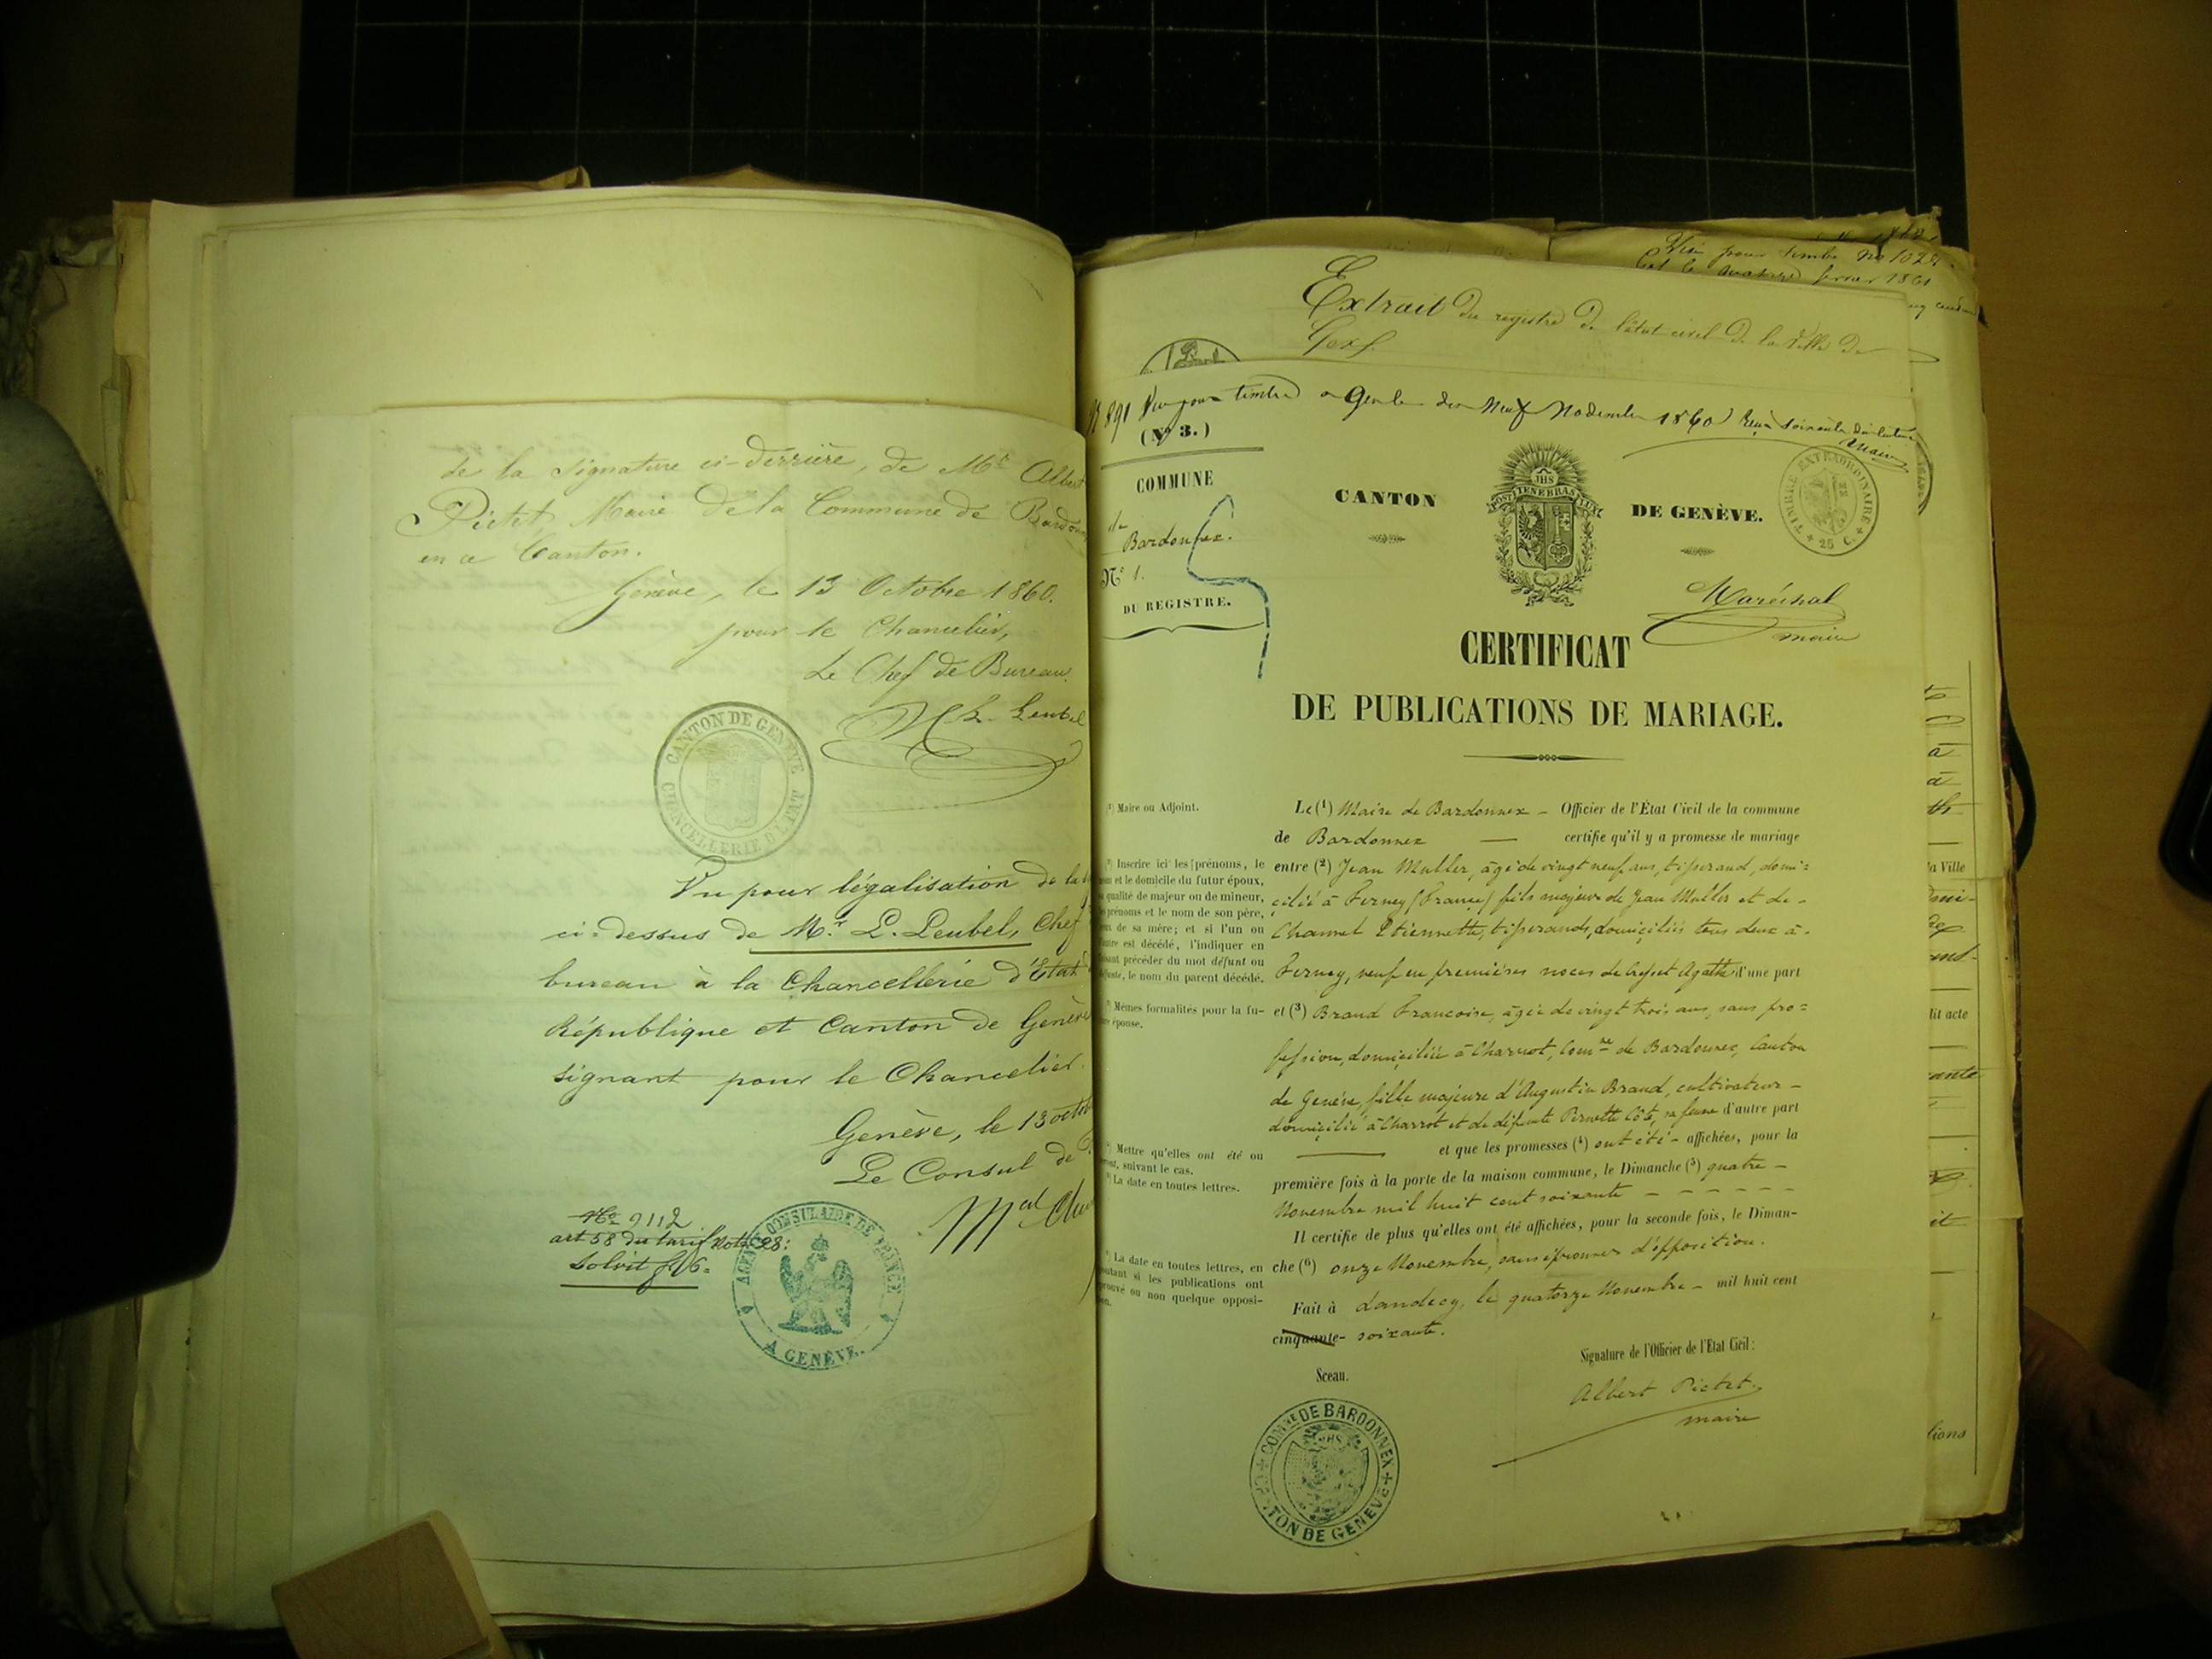 de la signature ci-derrière, de Mr Albert
Pictet Maire de la Commune de Bardonn
en ce Canton.
Genève, le 13 Octobre 1860.
pour le Chancelier,
Le Chef de Bureau.
Leubel
CANTON DE GENÈVE
CHANCELLERIE D'ETAT
Vu pour légalisation de la
ci-dessus de Mr. L. Leubel, Chef
bureau à la Chancellerie d'Etat
République et Canton de Genève
signant pour le Chancelier.
Genève, le 13 octob
Le Consul de
No 9112
art 58 du tarif Note 28:
Solvit f 06=
AGENCE CONSULAIRE DE FRANCE
A GENÈVE.
Visé pour timbre no 102
février 1861
Extrait du registre de l'état civil de la Ville de
Gex.
891 Vu pour timbre a Gex le neuf Novembre 1860 Reçu soixante
(No 3.)
COMMUNE
de
Bardonnex.
No 1.
DU REGISTRE.
CANTON
JHS
POST TENEBRAS LUX
DE GENÈVE.
TIMBRE EXTRAORDINAIRE
25 C.
Maréchal
maire
CERTIFICAT
DE PUBLICATIONS DE MARIAGE.
(1) Maire ou Adjoint.
Le (1) Maire de Bardonnex – Officier de l'État Civil de la commune
de Bardonnex — certifie qu'il y a promesse de mariage
Inscrire ici les prénoms, le
nom et le domicile du futur époux,
qualité de majeur ou de mineur,
prénoms et le nom de son père,
de sa mère; et si l'un ou
l'autre est décédé, l'indiquer en
faisant précéder du mot défunt ou
défunte, le nom du parent décédé.
entre (2) Jean Muller, âgé de vingt neuf ans, tisserand, domi=
cilié à Ferney (France) fils majeur de Jean Muller et de -
Channel Etiennette, tisserands, domiciliés tous deux à -
Ferney, veuf en premières noces de Crosset Agathe d'une part
Mêmes formalités pour la fu-
ture épouse.
et (3) Brand Francoise, âgée de vingt trois ans, sans pro=
fession, domiciliée à Charrot, Comne de Bardonnex, Canton
de Genève, fille majeure d'Augustin Brand, cultivateur –
domicilié à Charrot et de défunte Pernette Côte, sa femme d'autre part
Mettre qu'elles ont été ou
seront, suivant le cas.
La date en toutes lettres.
— et que les promesses (4) ont été – affichées, pour la
première fois à la porte de la maison commune, le Dimanche (5) quatre –
Novembre mil huit cent soixante – – – – – –
Il certifie de plus qu'elles ont été affichées, pour la seconde fois, le Diman-
La date en toutes lettres, en
ajoutant si les publications ont
éprouvé ou non quelque opposi-
tion.
che (6) onze Novembre, sans éprouver d'opposition.
Fait à Landecy, le quatorze Novembre – mil huit cent
cinquante- soixante.
Signature de l'Officier de l'État Civil:
Sceau.
Albert Pictet.
maire
COMNE DE BARDONNEX
CANTON DE GENÈVE
la Ville
dit acte